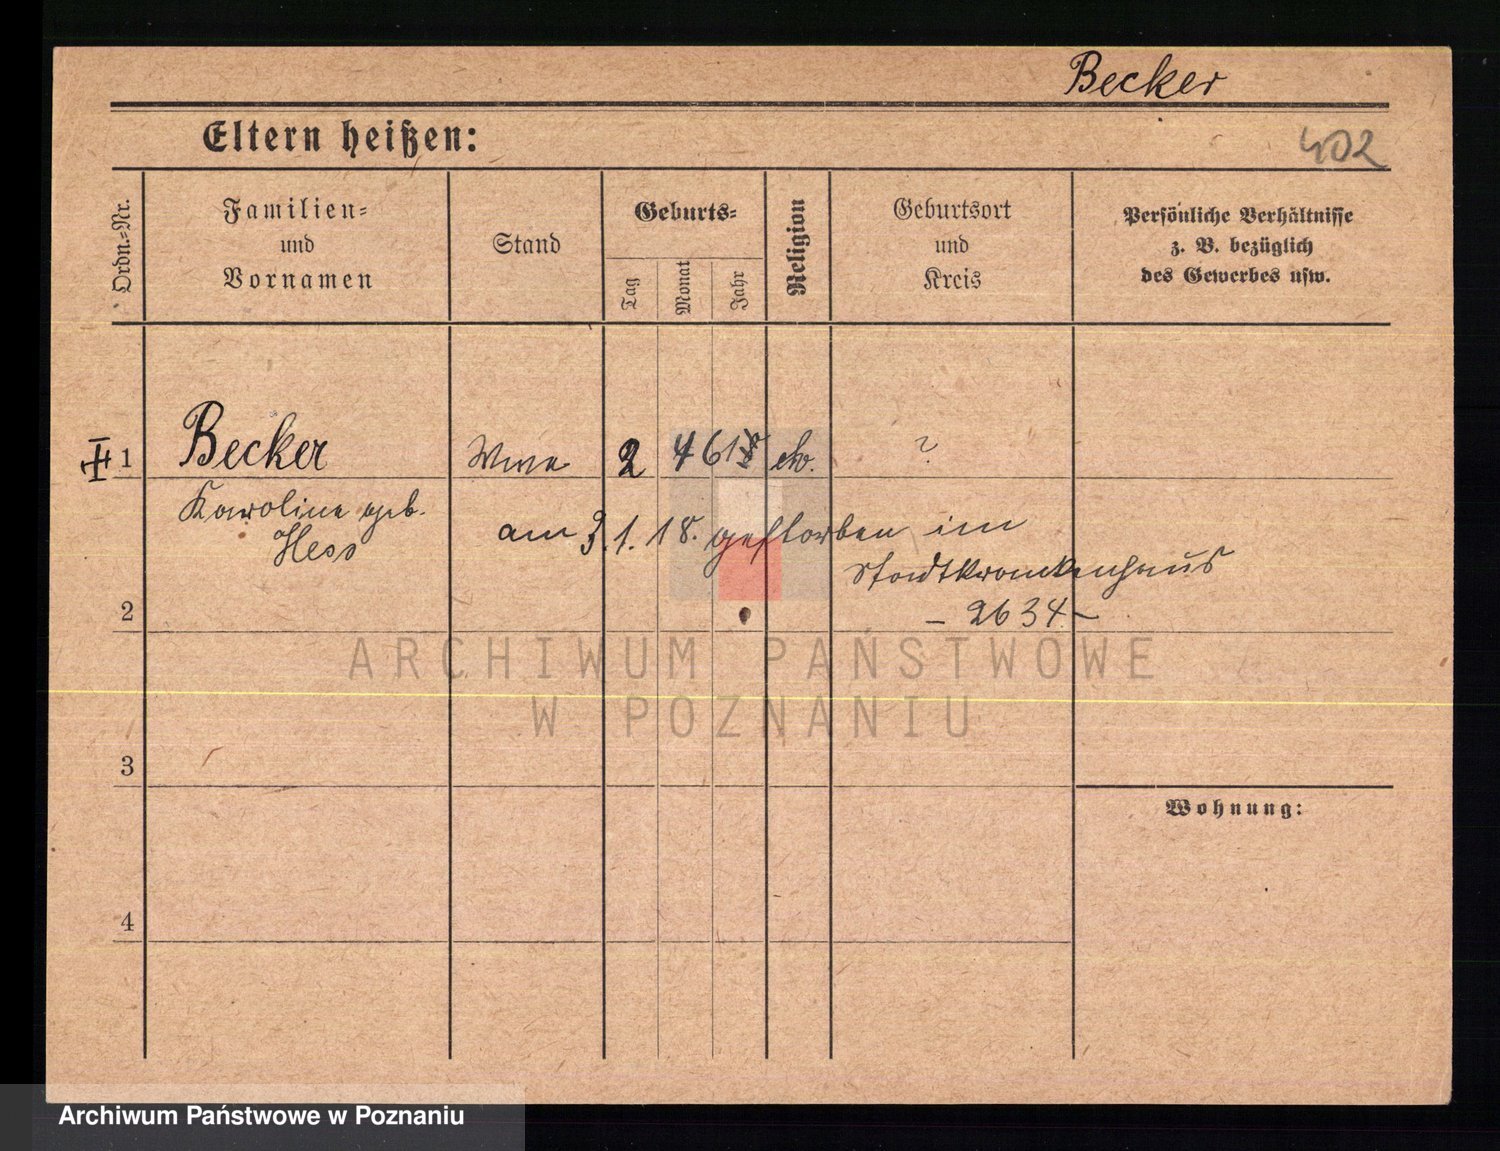 Becker
Eltern heißen:
402
Ordn.-Nr.
Familien-
und
Vornamen
Stand
Geburts-
Tag
Monat
Jahr
Religion
Geburtsort
und
Kreis
Persönliche Verhältnisse
z. B. bezüglich
des Gewerbes usw.
1 Becker Wwe 2 4 61 ev. ?
Karoline geb.
Hess
am 3.1.18. gestorben im
Stadtkrankenhaus
- 2634 -
2
3
Wohnung:
4
ARCHIWUM PAŃSTWOWE
W POZNANIU
Archiwum Państwowe w Poznaniu